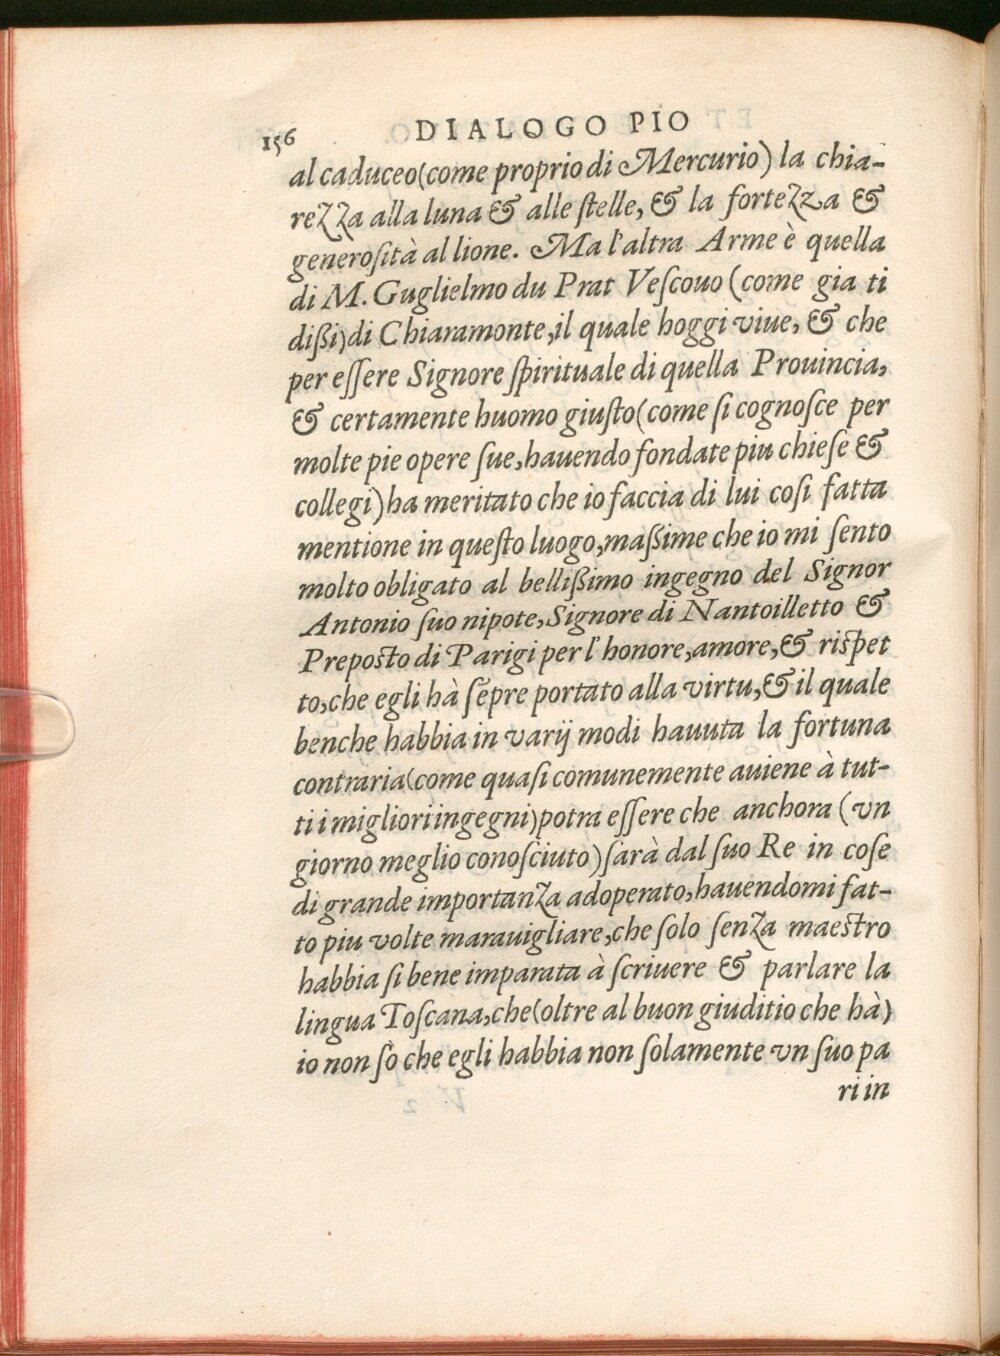 156 DIALOGO PIO
al caduceo(come proprio di Mercurio) la chia-
rezza alla luna & alle ſtelle, & la fortezza &
generoſità al lione. Ma l'altra Arme è quella
di M. Guglielmo du Prat Veſcouo (come gia ti
dißi) di Chiaramonte, il quale hoggi viue, & che
per eſſere Signore ſpirituale di quella Prouincia,
& certamente huomo giuſto (come ſi cognoſce per
molte pie opere ſue, hauendo fondate piu chieſe &
collegi) ha meritato che io faccia di lui coſi fatta
mentione in queſto luogo, maßime che io mi ſento
molto obligato al bellißimo ingegno del Signor
Antonio ſuo nipote, Signore di Nantoilletto &
Prepoſto di Parigi per l'honore, amore, & riſpet
to, che egli hà ſẽpre portato alla virtu, & il quale
benche habbia in varij modi hauuta la fortuna
contraria (come quaſi comunemente auiene à tut-
ti i migliori ingegni) potra eſſere che anchora (vn
giorno meglio conoſciuto) ſarà dal ſuo Re in coſe
di grande importanza adoperato, hauendomi fat-
to piu volte marauigliare, che ſolo ſenza maeſtro
habbia ſi bene imparata à ſcriuere & parlare la
lingua Toſcana, che (oltre al buon giuditio che hà)
io non ſò che egli habbia non ſolamente vn ſuo pa
ri in